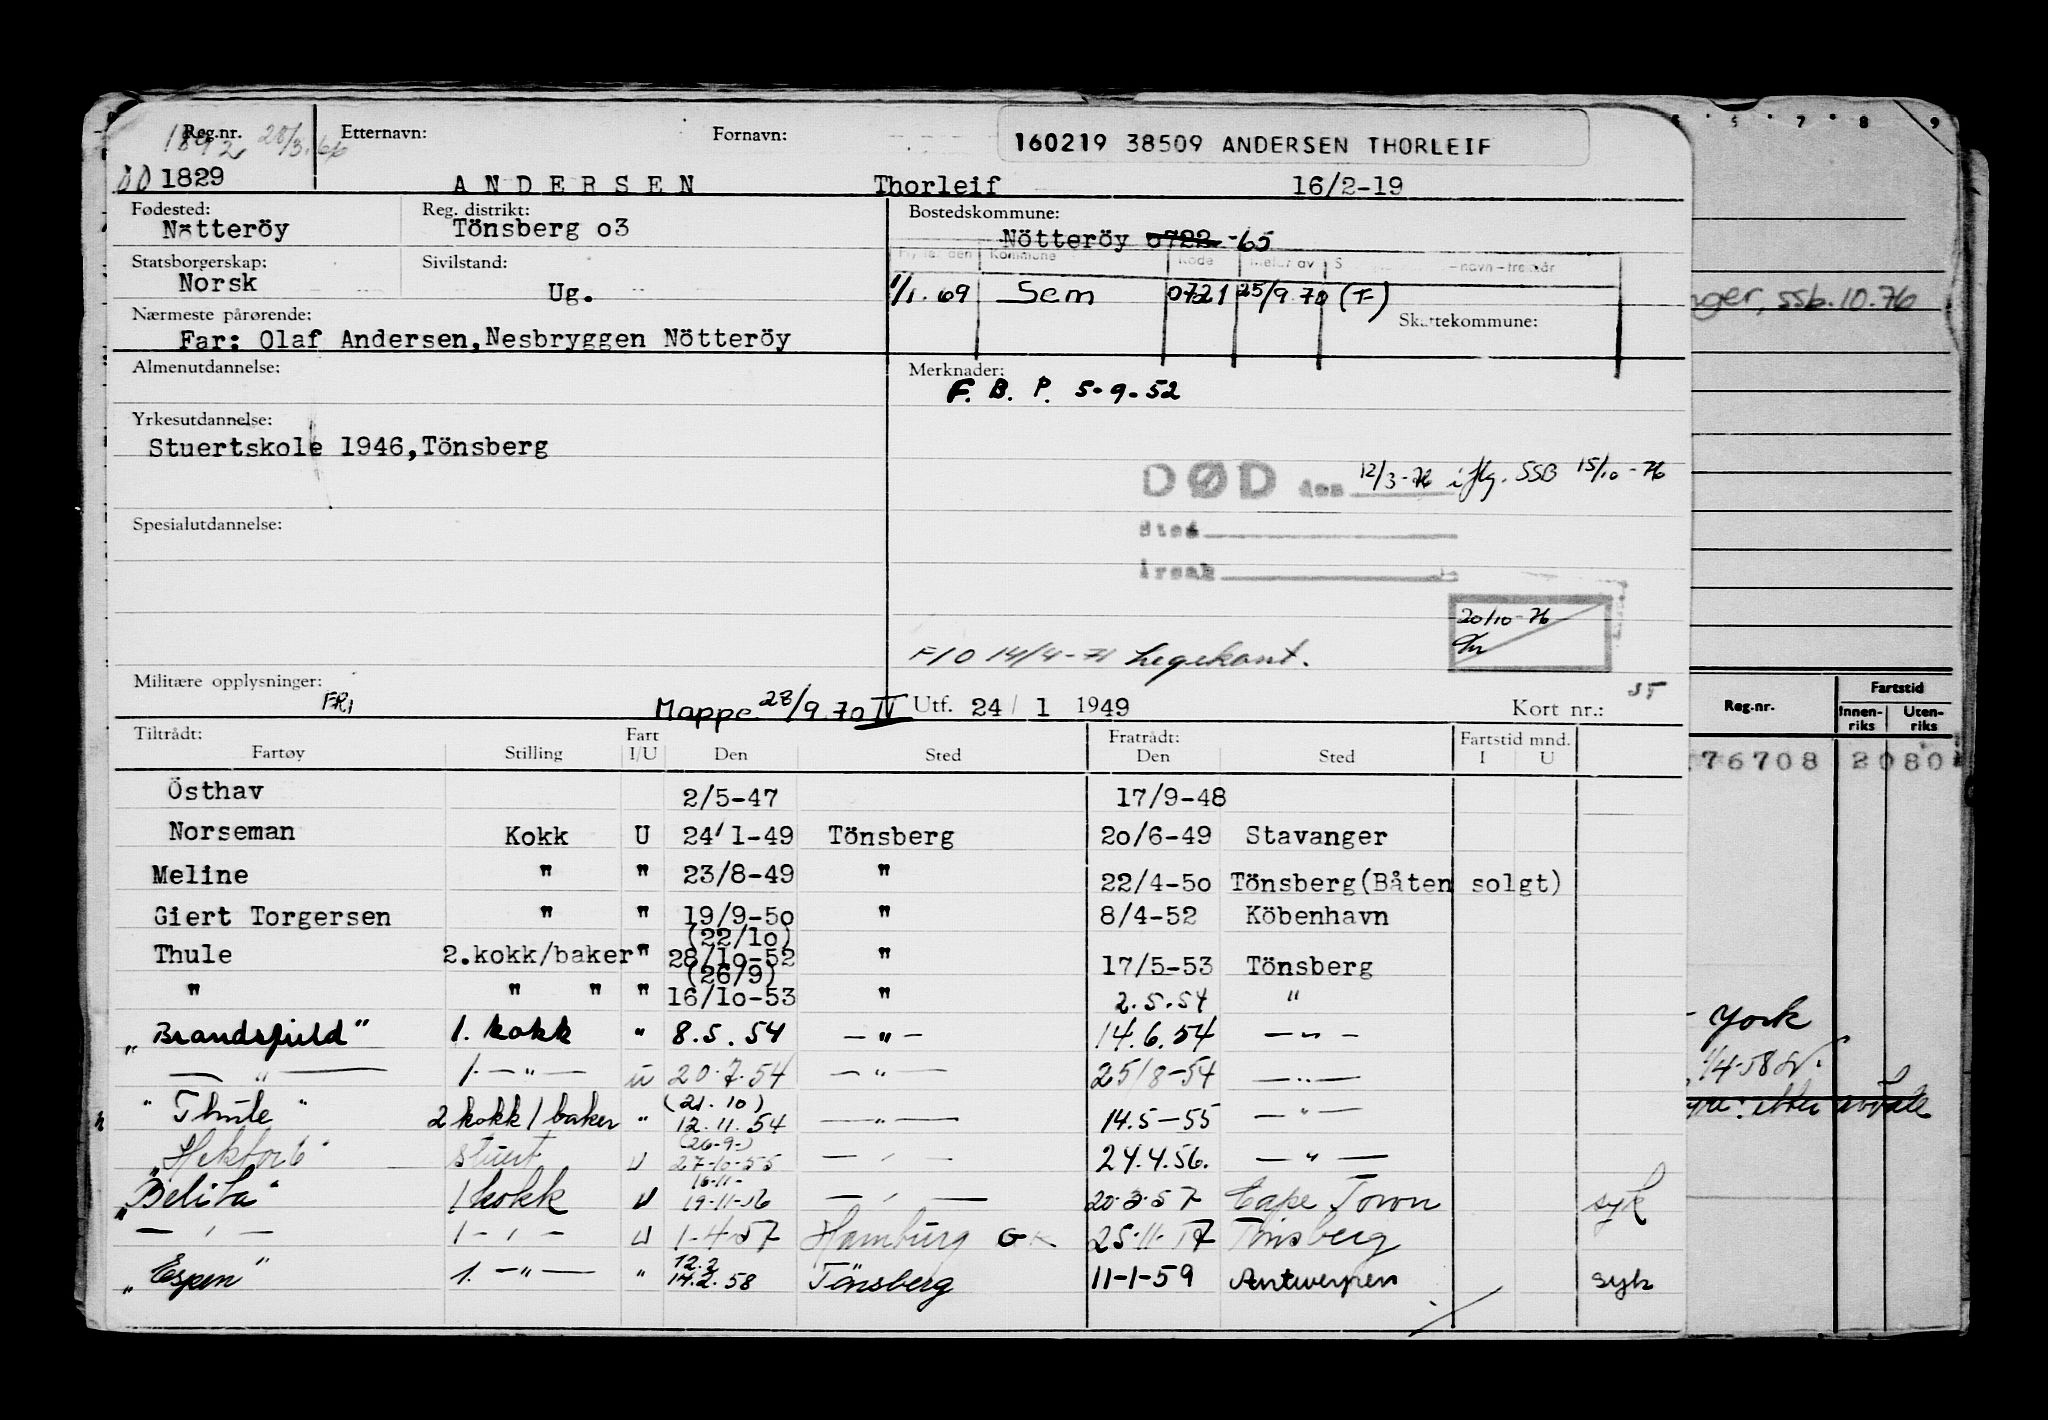 Reg.nr. 28/3.66 Etternavn: Fornavn: 160219 38509 ANDERSEN THORLEIF
1829 ANDERSEN Thorleif 16/2-19
Fødested: Reg. distrikt: Bostedskommune:
Nötteröy Tönsberg o3 Nötteröy 0722 -65
Statsborgerskap: Sivilstand:
Norsk Ug. 1/1.69 Sem 0721 25/9.70 (F)
Nærmeste pårørende: Skattekommune:
Far: Olaf Andersen, Nesbryggen Nötteröy
Almenutdannelse: Merknader:
F. B. P. 5-9-52
Yrkesutdannelse:
Stuertskole 1946, Tönsberg
DØD den 12/3-76 iflg. SSB 15/10-76
Sted
Årsak
Spesialutdannelse:
20/10-76
F/O 14/4-71 Legekont.
Militære opplysninger: FRI
Mappe 28/9.70 IV Utf. 24/1 1949 Kort nr.:
Tiltrådt: Fratrådt: Fartstid mnd.
Fartøy Stilling Fart I/U Den Sted Den Sted I U
Östhav 2/5-47 17/9-48
Norseman Kokk U 24/1-49 Tönsberg 2o/6-49 Stavanger
Meline " " 23/8-49 " 22/4-5o Tönsberg(Båten solgt)
Giert Torgersen " " 19/9-5o " 8/4-52 Köbenhavn
(22/1o)
Thule 2.kokk/baker " 28/1o-52 " 17/5-53 Tönsberg
(26/9)
" " " " 16/1o-53 " 2.5.54 "
„Brandsfield" 1. kokk " 8.5.54 — " — 14.6.54 — " —
— " — 1. — " — u 20.7.54 — " — 25/8-54 — " —
(21.10)
"Thule" 2 kokk/baker " 12.11.54 — " — 14.5-55 — " —
(26-9-)
„Hektor 6" stuert U 27-10-55 — " — 24.4.56. — " —
16-11-
„Belita" 1 kokk U 19-11-56 — " — 20-3-57 Cape Town syk
— " — 1 — " — U 1-4-57 Hamburg GK 25-11-57 Tönsberg
12.2
„Espen" 1. — " — " 14.2.58 Tönsberg 11-1-59 Antwerpen syk
5 7 8 9
ssb.10.76
Reg.nr. Fartstid
Innenriks Utenriks
76708 2080
York